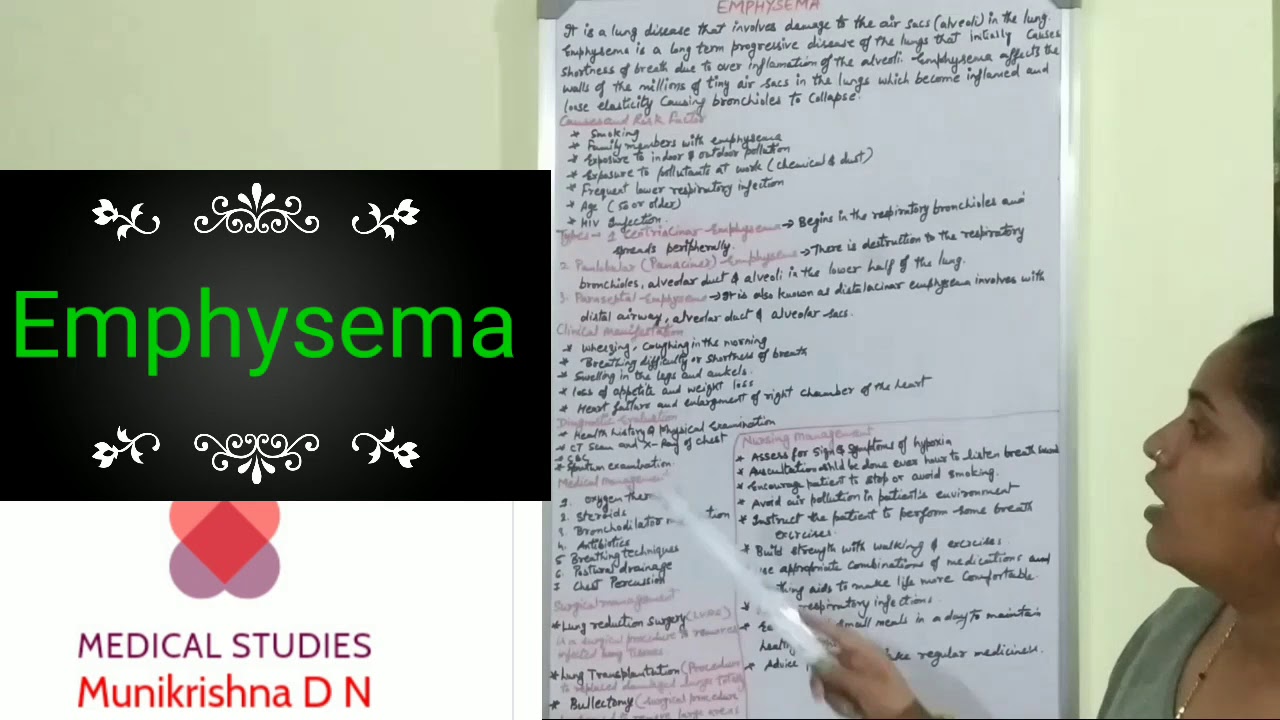 Emphysema
MEDICAL STUDIES
Munikrishna D N
EMPHYSEMA
It is a lung disease that involves damage to the air sacs (alveoli) in the lung.
Emphysema is a long term progressive disease of the lungs that initially causes
shortness of breath due to over inflamation of the alveoli. Emphysema affects the
walls of the millions of tiny air sacs in the lungs which become inflamed and
loose elasticity causing bronchioles to collapse.
Causes and Risk Factor
* Smoking
* Family members with emphysema
* Exposure to indoor & outdoor pollution
* Exposure to pollutants at work (chemical & dust)
* Frequent lower respiratory infection
* Age (50 or older)
* HIV Infection.
Types → 1 Centriacinar Emphysema → Begins in the respiratory bronchioles and
spreads peripherally.
2. Panlobular (Panacinar) Emphysema → There is destruction to the respiratory
bronchioles, alveolar duct & alveoli in the lower half of the lung.
3. Paraseptal Emphysema → It is also known as distalacinar emphysema involves with
distal airway, alveolar duct & alveolar sacs.
Clinical Manifestation
* Wheezing, coughing in the morning
* Breathing difficulty or shortness of breath
* Swelling in the legs and ankels.
* loss of appetite and weight loss
* Heart failure and enlargement of right chamber of the heart
Diagnostic Evaluation
* Health history & Physical Examination
* CT Scan and X-Ray of chest
* CBC
* Sputum examination
Medical management
1. oxygen
2. Steroids
3. Bronchodilator
4. Antibiotics
5 Breathing techniques
6. Postural drainage
7. Chest Percussion
Surgical management
* Lung reduction surgery (LVRS)
is a surgical procedure to remove
infected lung tissues.
* Lung Transplantation (Procedure
to replaced damaged lungs
* Bullectomy (surgical procedure
to remove large areas
Nursing Management
* Assess for sign & symptoms of hypoxia
* Auscultation shld be done ever hour to listen breath sound
* Encourage patient to stop or avoid smoking.
* Avoid air pollution in patient's environment
* Instruct the patient to perform some breath
excrcises.
* Build strength with walking & excrcises.
use appropriate combinations of medications and
aids to make life more comfortable.
* respiratory infections.
* small meals in a day to maintain
healthy
* Advice regular medicines.